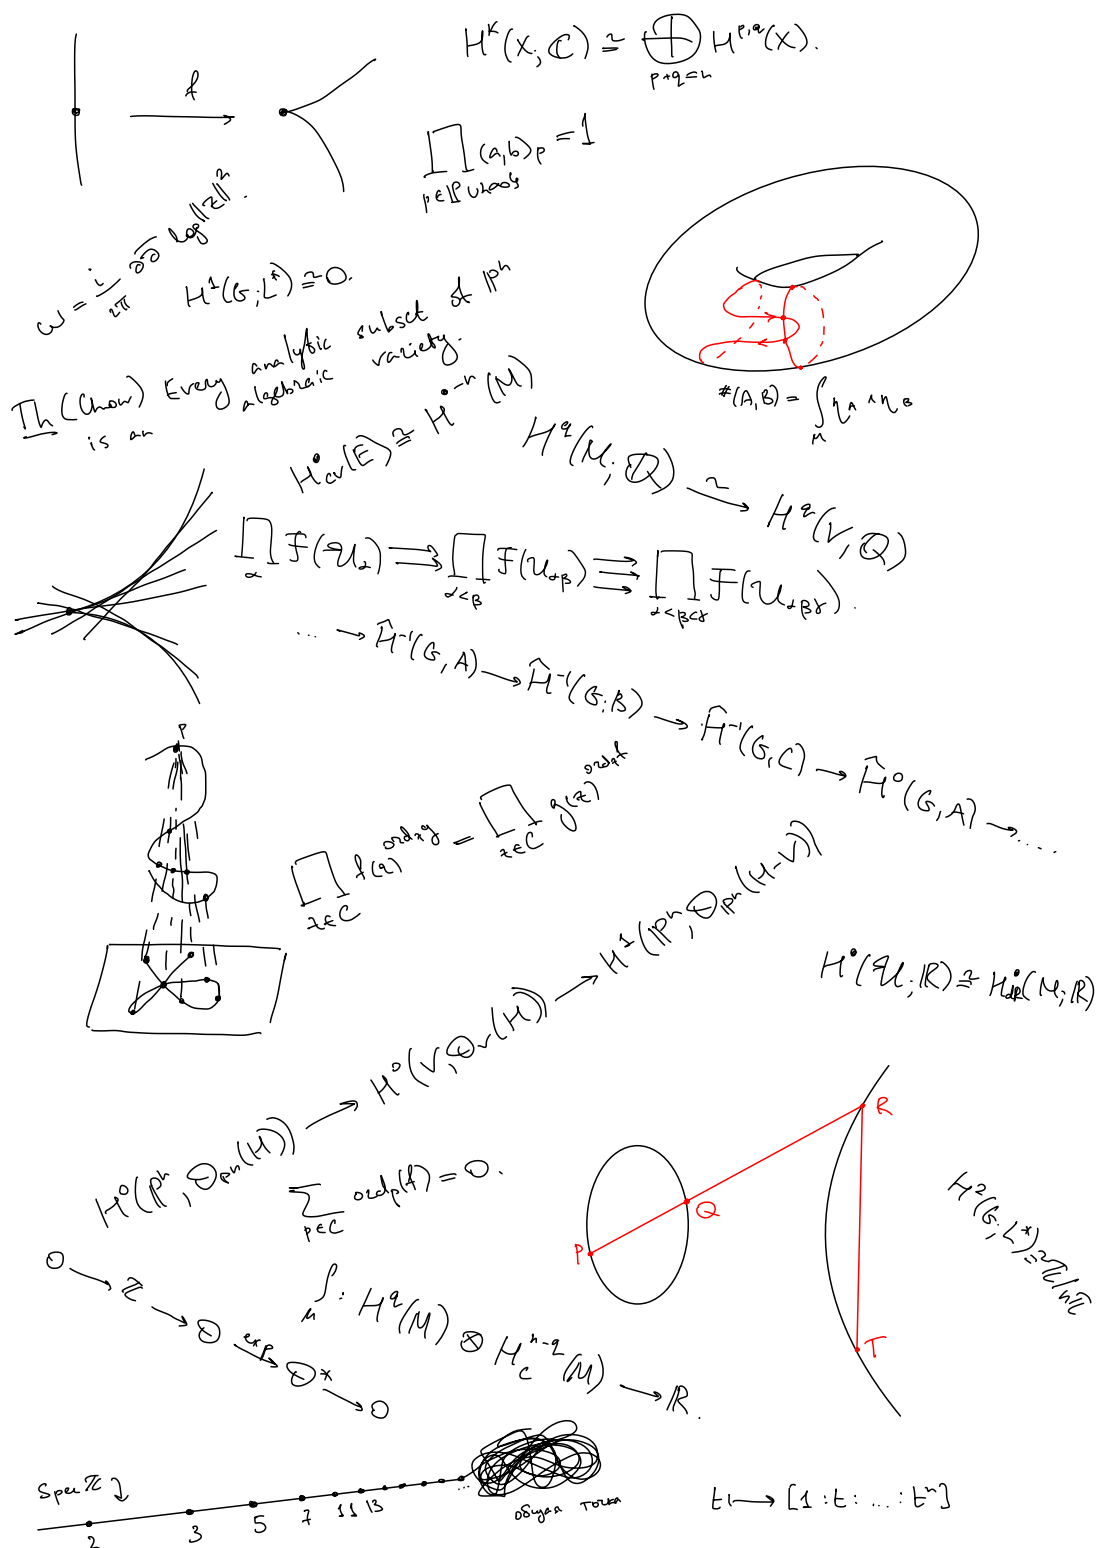 H^k(X; ℂ) ≃ ⊕_{p+q=n} H^{p,q}(X).
f
∏_{p∈ℙ∪{∞}} (a,b)_p = 1
ω = i/2π ∂∂̄ log||z||².
H¹(G; L*) ≅ 0.
Th (Chow) Every analytic subset of ℙⁿ
is an algebraic variety.
#(A,B) = ∫_M η_A ∧ η_B
H^•_{cv}(E) ≅ H^{•-n}(M)
H^q(M; ℚ) ⥲ H^q(V, ℚ)
∏_α F(U_α) ⇉ ∏_{α<β} F(U_{αβ}) ⇶ ∏_{α<β<γ} F(U_{αβγ}).
... → Ĥ^{-1}(G, A) → Ĥ^{-1}(G; B) → Ĥ^{-1}(G, C) → Ĥ^0(G, A) → ....
P
∏_{z∈C} f(z)^{ord_z g} = ∏_{z∈C} g(z)^{ord_z f}
H^0(ℙⁿ, O_{ℙⁿ}(H)) → H^0(V, O_V(H)) → H^1(ℙⁿ, O_{ℙⁿ}(H-V))
H^•(U; ℝ) ≅ H^•_{dR}(M; ℝ)
R
Q
P
T
∑_{p∈C} ord_p(f) = 0.
H²(G; L*) ≅ ℤ/nℤ
0 → ℤ → O →^{exp} O* → 0
∫_M : H^q(M) ⊗ H_c^{n-q}(M) → ℝ.
Spec ℤ
2 3 5 7 11 13 ...
общая точка
t ↦ [1 : t : ... : tⁿ]